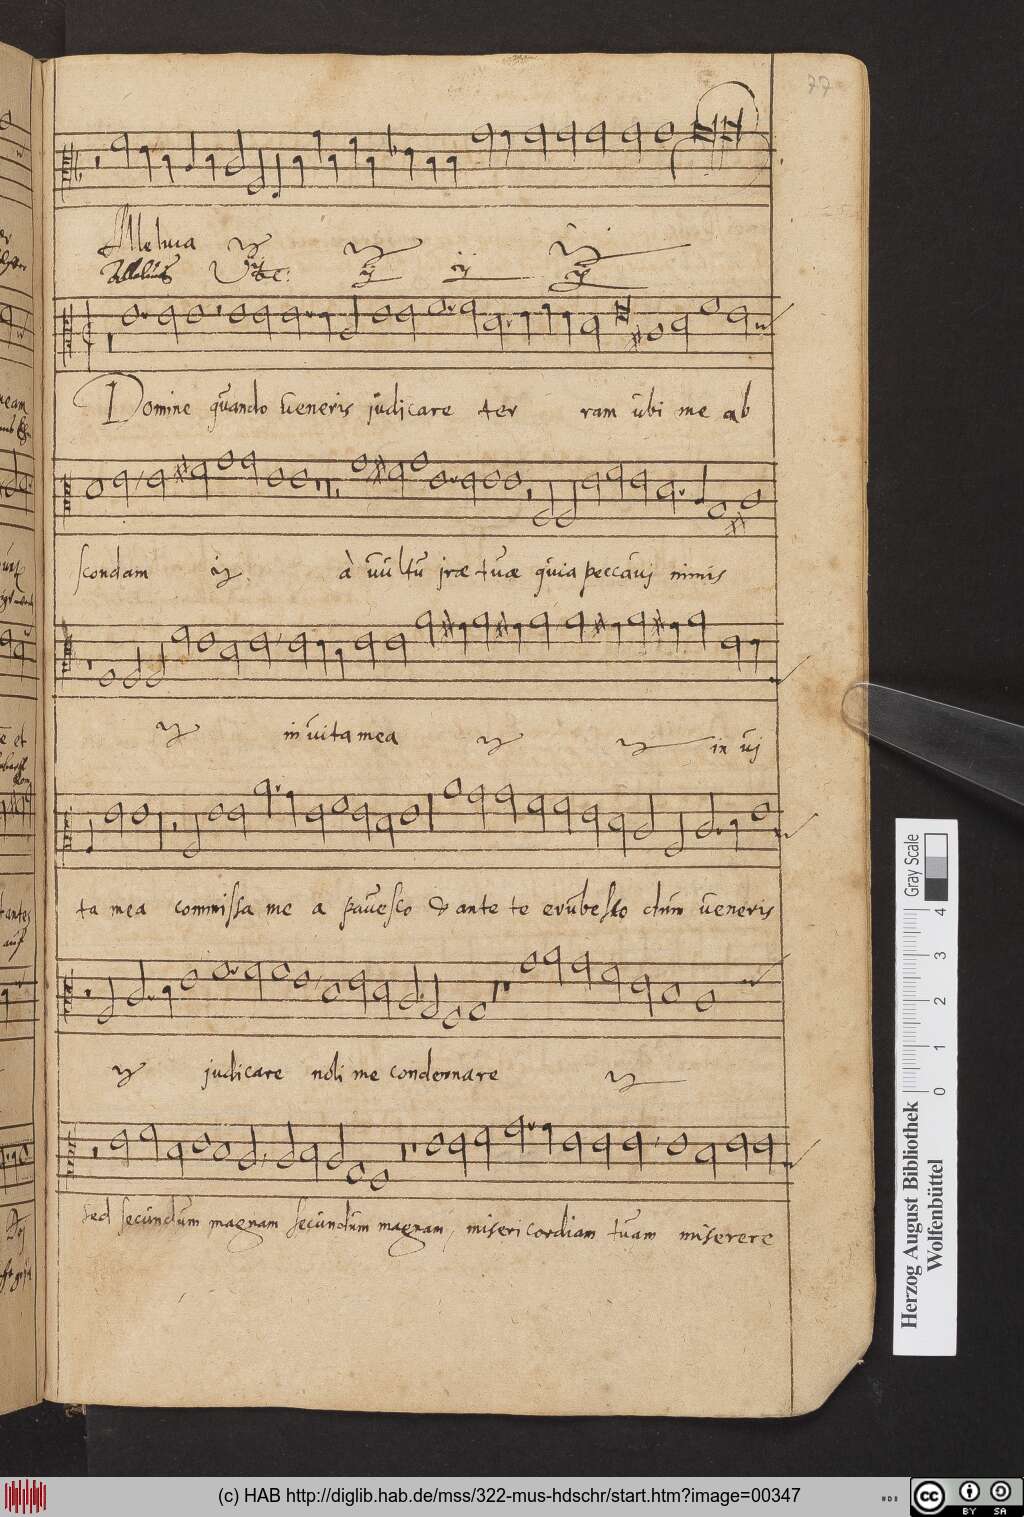 77
Alleluia ij ij ij
Alleluia
Domine quando veneris judicare ter ram ubi me ab
scondam ij à vultu iræ tuæ quia peccavi nimis
ij in vita mea ij ij in vi
ta mea commissa me a pavesco & ante te erubesco dum veneris
ij judicare noli me condemnare ij
sed secundum magnam secundum magnam, misericordiam tuam miserere
Gray Scale
0 1 2 3 4
Herzog August Bibliothek
Wolfenbüttel
(c) HAB http://diglib.hab.de/mss/322-mus-hdschr/start.htm?image=00347
cc BY SA